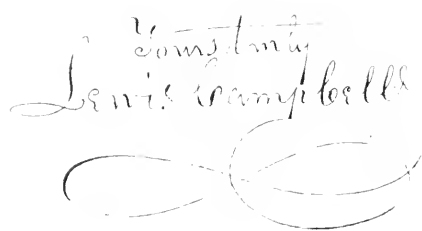 Yours truly
Lewis Campbell